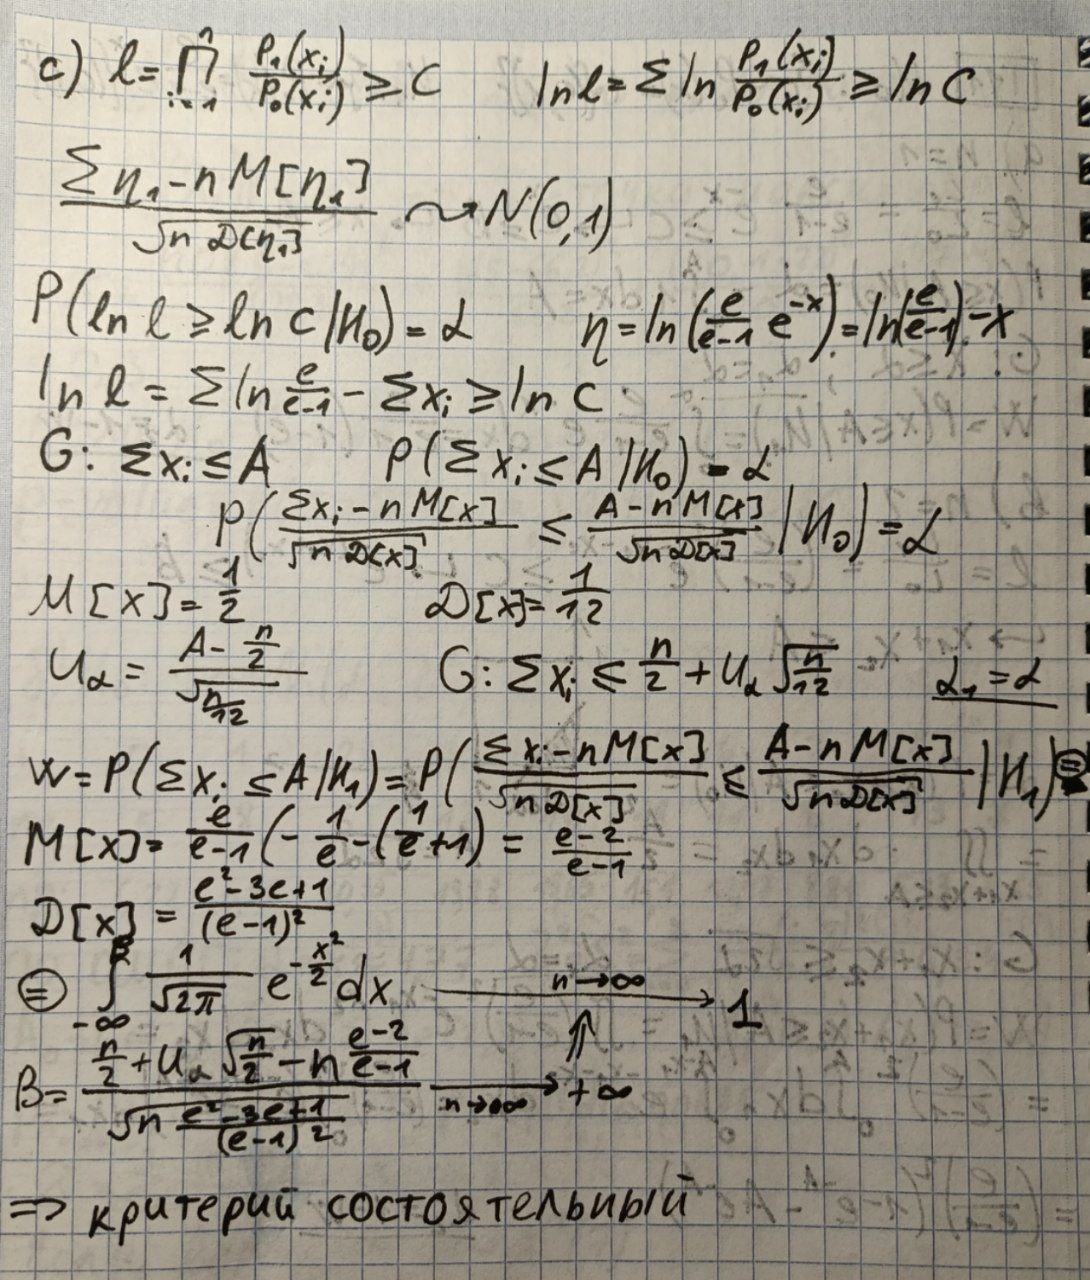 c) l = ∏ᵢ₌₁ⁿ P₁(xᵢ)/P₀(xᵢ) ≥ C   ln l = Σ ln P₁(xᵢ)/P₀(xᵢ) ≥ ln C
(Σ η₁ - n M[η₁])/√(n D[η₁]) ⇝ N(0,1)
P(ln l ≥ ln C | H₀) = α   η = ln(e/(e-1) e^(-x)) = ln(e/(e-1)) - x
ln l = Σ ln e/(e-1) - Σ xᵢ ≥ ln C
G: Σ xᵢ ≤ A   P(Σ xᵢ ≤ A | H₀) = α
P((Σxᵢ - n M[x])/√(n D[x]) ≤ (A - n M[x])/√(n D[x]) | H₀) = α
M[x] = 1/2   D[x] = 1/12
U_α = (A - n/2)/√(n/12)   G: Σ xᵢ ≤ n/2 + U_α √(n/12)   α₁ = α
W = P(Σ xᵢ ≤ A | H₁) = P((Σ xᵢ - n M[x])/√(n D[x]) ≤ (A - n M[x])/√(n D[x]) | H₁) ⊜
M[x] = e/(e-1) (-1/e - (1/e + 1) = (e-2)/(e-1)
D[x] = (e² - 3e + 1)/(e-1)²
⊜ ∫_(-∞)^B 1/√(2π) e^(-x²/2) dx ⟶ (n→∞) 1
B = (n/2 + U_α √(n/2) - n (e-2)/(e-1))/√(n (e² - 3e + 1)/(e-1)²) ⟶ (n→∞) +∞ ⇑
⇒ критерий состоятельный